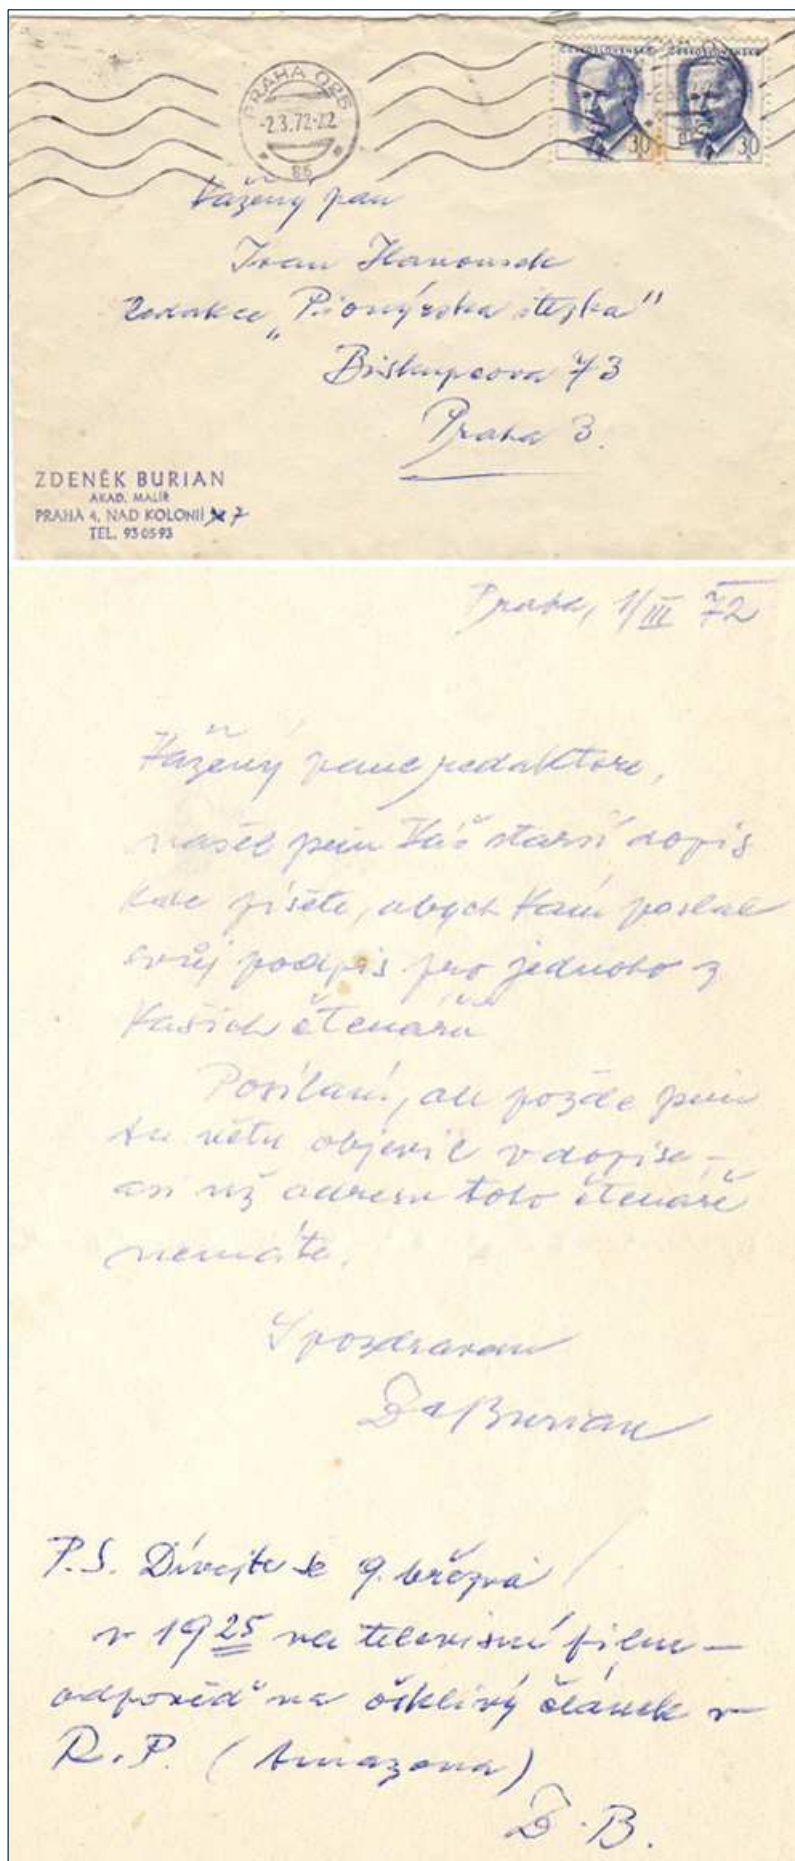 PRAHA 025
-2.3.72-22
ČESKOSLOVENSKO ČESKOSLOVENSKO
30 30
Vážený pan
Ivan Hanousek
Redakce „Pionýrska stezka"
Biskupcova 73
Praha 3.
ZDENĚK BURIAN
AKAD. MALÍŘ
PRAHA 4, NAD KOLONIÍ 7
TEL. 93 05 93
Praha, 1/III 72
Vážený pane redaktore,
našel jsem Váš starší dopis
kde píšete, abych Vám poslal
svůj podpis pro jednoho z
Vašich čtenářů
Posílám, ale pozdě jsem
tu větu objevil v dopise –
asi už adresu toho čtenáře
nemáte.
S pozdravem
Zd Burian
P.S. Dívejte se 9. března
v 19 25 na televisní film –
odpověď na ošklivý článek v
R.P. (Amazona)
Z.B.